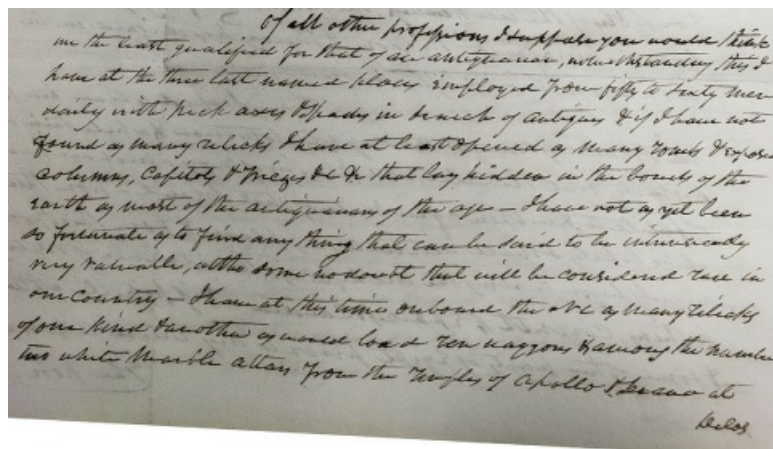 Of all other professions I suppose you would think
me the least qualified for that of an antiquarian, notwithstanding this I
have at the three last named places employed from fifty to sixty men
daily with pick axes & spades in search of antiques & if I have not
found as many relicks I have at least opened as many tombs & exposed
columns, Capitols & friezes &c &c that lay hidden in the bowels of the
earth as most of the antiquarians of the age – I have not as yet been
so fortunate as to find any thing that can be said to be intrinsically
very valuable, altho some no doubt that will be considered rare in
our Country – I have at this time onboard the N C as many relicks
of one kind & another as would load ten waggons & among the number
two white Marble altars from the Temples of Apollo & Diana at
Delos